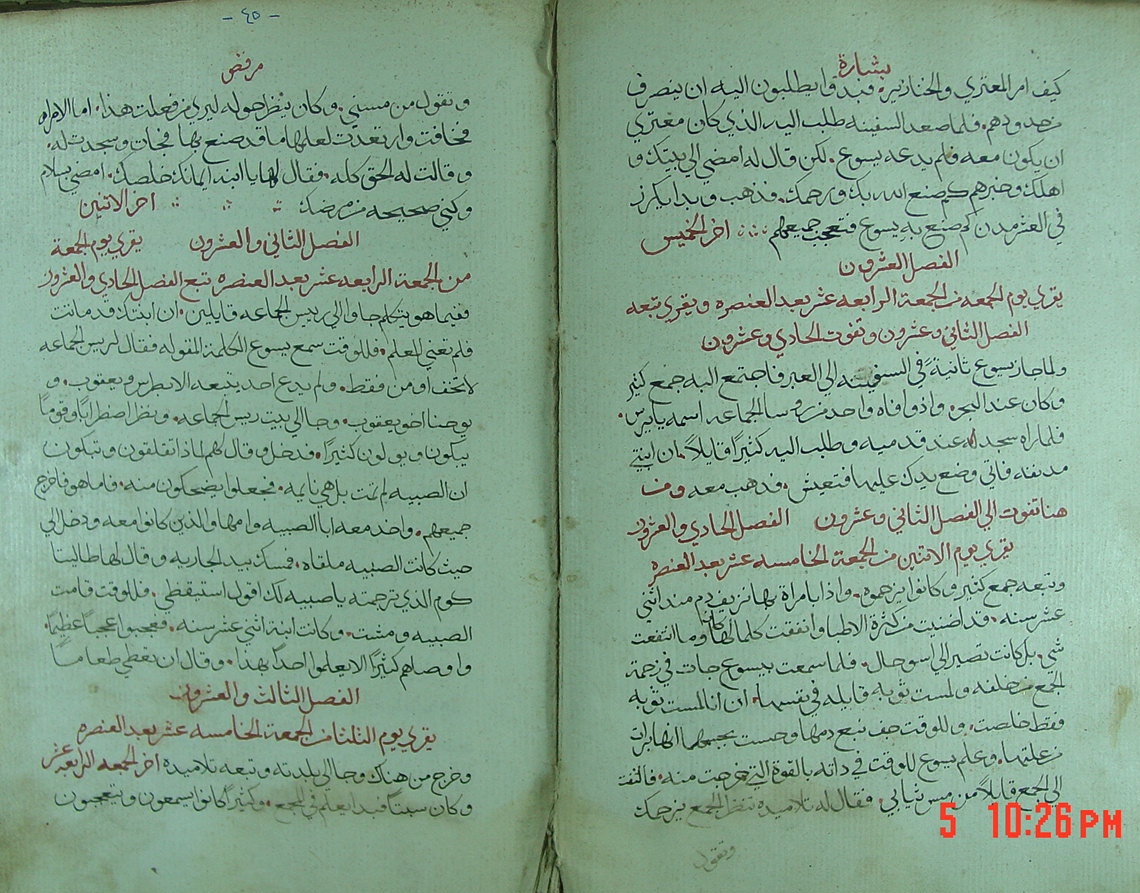 بشارة
كيف امر المعتري والخنازير. فبدوا يطلبون اليه ان ينصرف
من حدودهم. فلما صعد السفينه طلب اليه الذي كان معتري
ان يكون معه فلم يدعه يسوع. لكن قال له امضي الى بيتك و
اهلك وخبرهم كم صنع الله بك ورحمك. فذهب وبدا يكرز
في العشر مدن كم صنع به يسوع فتعجب جميعهم اخر الخميس
الفصل العشرون
يقرى يوم الجمعه من الجمعة الرابعه عشر بعد العنصره ويقرى تبعه
الفصل الثاني وعشرون وتفوت الحادي وعشرون
ولما جاز يسوع ثانيةً في السفينه الى العبر فاجتمع اليه جمع كثير
وكان عند البحر. واذ وافاه واحد من روسا الجماعه اسمه يايرس.
فلما راه سجد له عند قدميه وطلب اليه كثيرًا قايلاً. ان ابنتي
مدنفه فاتي وضع يدك عليها فتعيش. فذهب معه ومن
هنا تفوت الى الفصل الثاني وعشرون الفصل الحادي والعشرون
يقرى يوم الاثنين من الجمعة الخامسه عشر بعد العنصره
وتبعه جمع كثير وكانوا يزحموه. واذا بامراة بها نزيف دم منذ اثني
عشر سنه. قد اضنيت من كثرة الاطبا وانفقت كلما كان لها وما انتفعت
شي. بل كانت تصير الى اسو حال. فلما سمعت بيسوع جات في زحمة
الجمع من خلفه ولمست ثوبه قايله في نفسها. ان انا لمست ثوبه
فقط خلصت. وللوقت جف نبع دمها وحست بجسمها انها برات
من علتها. وعلم يسوع للوقت في ذاته بالقوة التي خرجت منه. فالتفت
الى الجمع قايلاً من مس ثيابي. فقال له تلاميذه تنظر الجمع يزحمك
وتقول
5 10:26 PM
- ٤٥ -
مرقص
وتقول من مسني. وكان ينظر حوله ليرى من فعلت هذا. اما الامراه
فخافت وارتعدت لعلمها ما قد صنع بها فجات وسجدت له.
وقالت له الحق كله. فقال لها يا ابنه ايمانك خلصك. امضي بسلام
وكني صحيحه من مرضك اخر الاثنين
الفصل الثاني والعشرون يقرى يوم الجمعة
من الجمعة الرابعه عشر بعد العنصره تبع الفصل الحادي والعشرون
ففيما هو يتكلم جاوا الى رييس الجماعه قايلين. ان ابنتك قد ماتت
فلم تعني المعلم. فللوقت سمع يسوع الكلمة المقوله فقال لرييس الجماعه
لا تخف اومن فقط. ولم يدع احد يتبعه الا بطرس ويعقوب. و
يوحنا اخو يعقوب. وجا الى بيت رييس الجماعه. ونظر اضطرابًا وقومًا
يبكون ويولولون كثيرًا. فدخل وقال لهم لماذا تقلقون وتبكون
ان الصبيه لم تمت بل هي نايمه. فجعلوا يضحكون منه. فاما هو فاخرج
جميعهم. واخذ معه ابا الصبيه وامها والذين كانوا معه ودخل الى
حيث كانت الصبيه ملقاه. فمسك بيد الجاريه وقال لها طاليثا
كوم الذي ترجمته يا صبيه لك اقول استيقظي. فللوقت قامت
الصبيه ومشت. وكانت ابنة اثني عشر سنه. فعجبوا عجبًا عظيمًا.
واوصاهم كثيرًا الا يعلموا احدًا بهذا. وقال ان تعطى طعامًا
الفصل الثالث والعشرون
يقرى يوم الثلثا من الجمعة الخامسه عشر بعد العنصره
وخرج من هناك وجا الى بلدته وتبعه تلاميذه اخر الجمعه الرابعه عشر
وكان سبتًا فبدا يعلم في المجمع. وكثيرًا كانوا يسمعون ويتعجبون